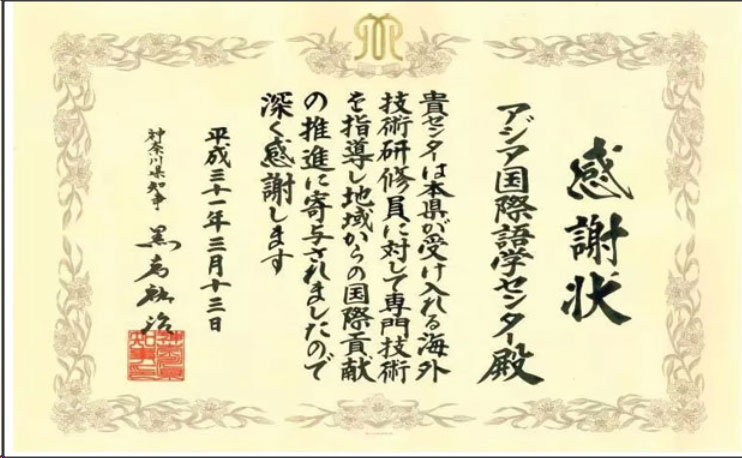 感謝状
アジア国際語学センター殿
貴センターは本県が受け入れる海外
技術研修員に対して専門技術
を指導し地域からの国際貢献
の推進に寄与されましたので
深く感謝します
平成三十一年三月十三日
神奈川県知事 黒岩祐治